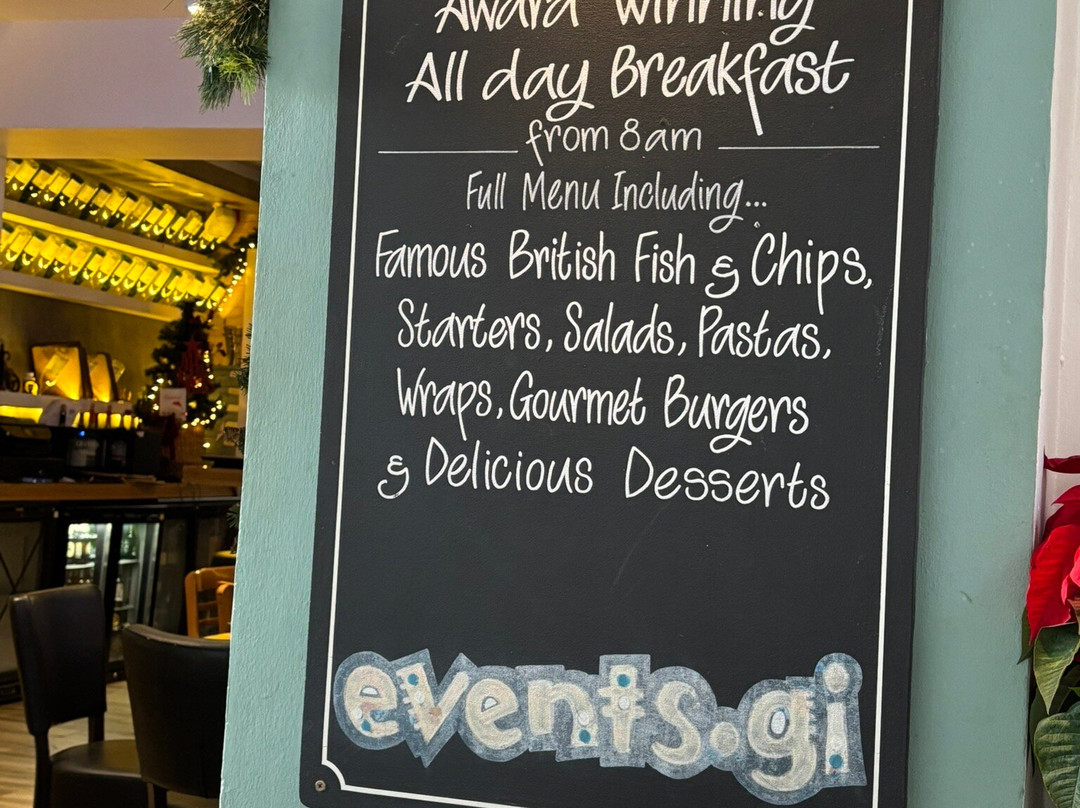 Award winning
All day Breakfast
from 8am
Full Menu Including...
Famous British Fish & Chips,
Starters, Salads, Pastas,
Wraps, Gourmet Burgers
& Delicious Desserts
events.gi